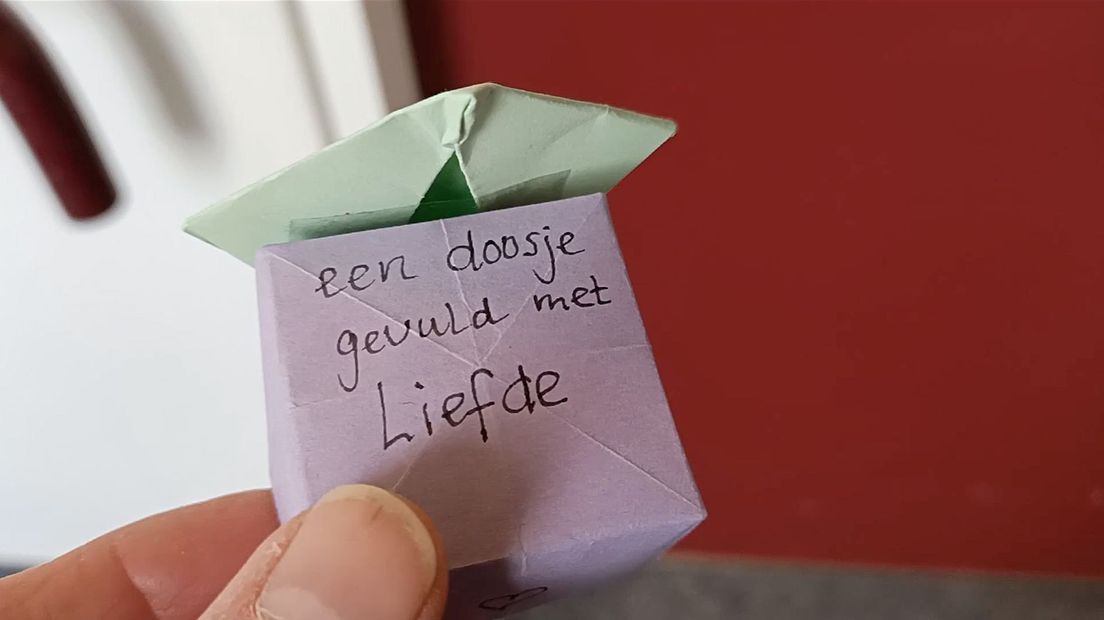 een doosje
gevuld met
Liefde